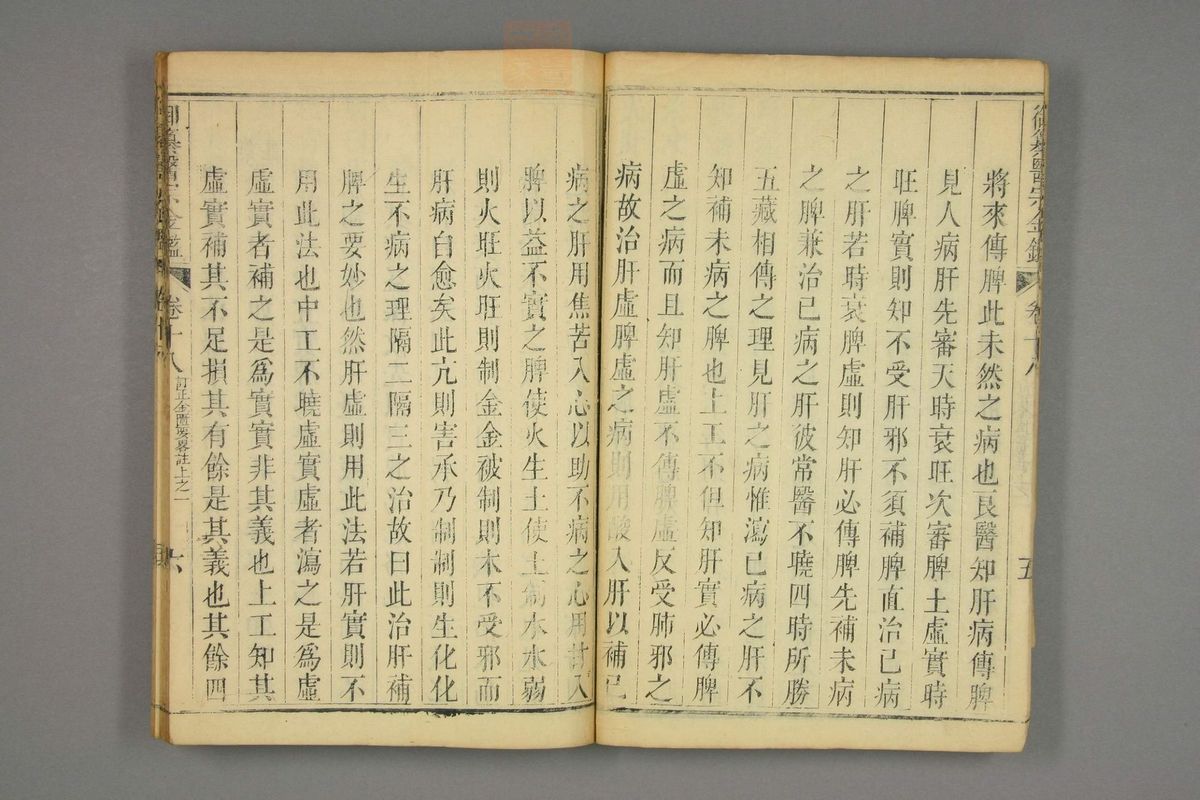 御纂醫宗金鑑 卷十八 五
將來傳脾此未然之病也良醫知肝病傳脾
見人病肝先審天時衰旺次審脾土虛實時
旺脾實則知不受肝邪不須補脾直治已病
之肝若時衰脾虛則知肝必傳脾先補未病
之脾兼治已病之肝彼常醫不曉四時所勝
五藏相傳之理見肝之病惟瀉已病之肝不
知補未病之脾也上工不但知肝實必傳脾
虛之病而且知肝虛不傳脾虛反受肺邪之
病故治肝虛脾虛之病則用酸入肝以補已
病之肝用焦苦入心以助不病之心用甘入
脾以益不實之脾使火生土使土制水水弱
則火旺火旺則制金金被制則木不受邪而
肝病自愈矣此亢則害承乃制制則生化化
生不病之理隔二隔三之治故曰此治肝補
脾之要妙也然肝虛則用此法若肝實則不
用此法也中工不曉虛實虛者瀉之是為虛
虛實者補之是為實實非其義也上工知其
虛實補其不足損其有餘是其義也其餘四
御纂醫宗金鑑 卷十八 訂正金匱要畧註上之一 六